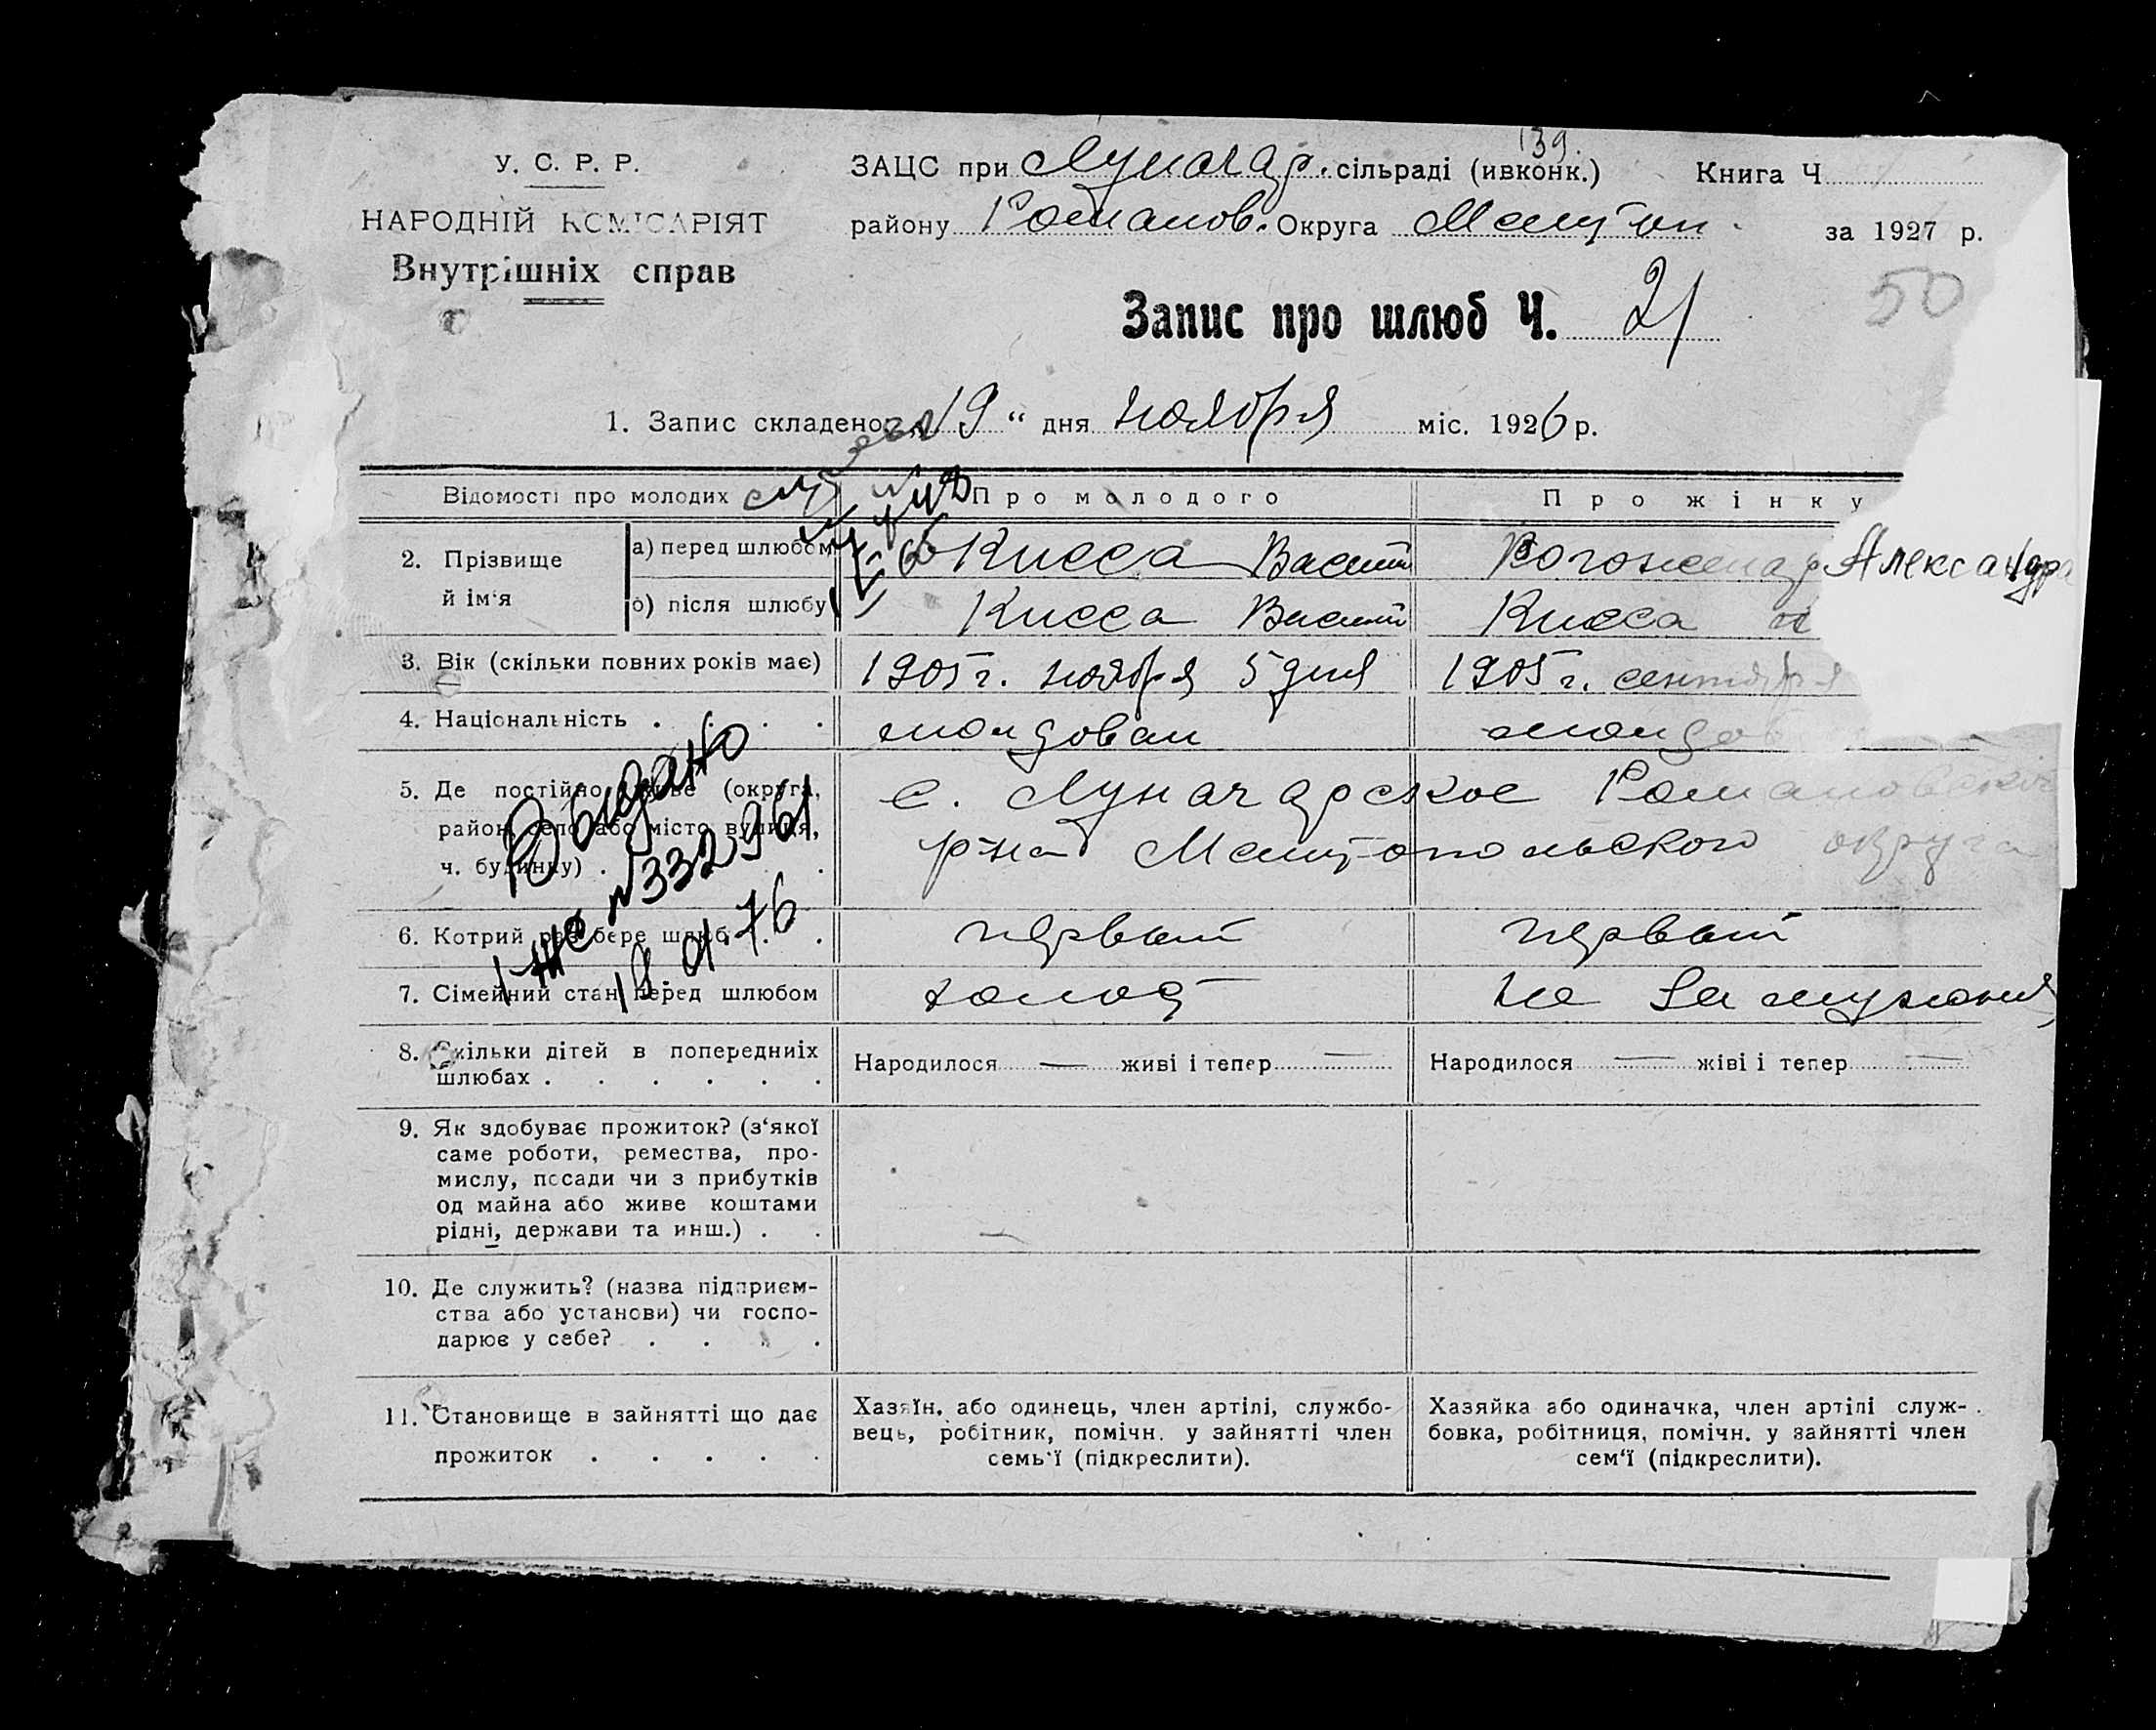 139.
У. С. Р. Р.
НАРОДНІЙ КОМІСАРІЯТ
Внутрішніх справ
ЗАЦС при Луначар. сільраді (ивконк.) Книга Ч
району Роман­ов. Округа Мелитоп. за 1927 р.
50
Запис про шлюб Ч. 21
1. Запис складено „19“ дня ноября міс. 1926 р.
Відомості про молодих Про молодого Про жінку
2. Прізвище й ім‘я
а) перед шлюбом Кисса Василий Александра
б) після шлюбу Кисса Василий Кисса
3. Вік (скільки повних років має) 1905 г. ноября 5 дня 1905 г. сентября
4. Національність . . . . молдован
5. Де постійно живе (округа, район, село або місто вулиця, ч. будинку) . с. Луначарское Романовского
р-на Мелитопольского округа
Выдано
І-ЖС №332961
6. Котрий раз бере шлюб . . первый первый
7. Сімейний стан перед шлюбом холост не замужняя
8. Скільки дітей в попередниіх шлюбах . . . . . . Народилося — живі і тепер — Народилося — жіві і тепер —
9. Як здобуває прожиток? (з‘якої
саме роботи, ремества, про-
мислу, посади чи з прибутків
од майна або живе коштами
рідні, держави та инш.) . .
10. Де служить? (назва підприєм-
ства або установи) чи госпо-
дарює у себе? . . . .
11. Становище в зайнятті що дає
прожиток . . . . .
Хазяїн, або одинець, член артілі, службо-
вець, робітник, помічн. у зайнятті член
семь‘ї (підкреслити).
Хазяйка або одиначка, член артілі служ-
бовка, робітниця, помічн. у зайнятті член
сем‘ї (підкреслити).